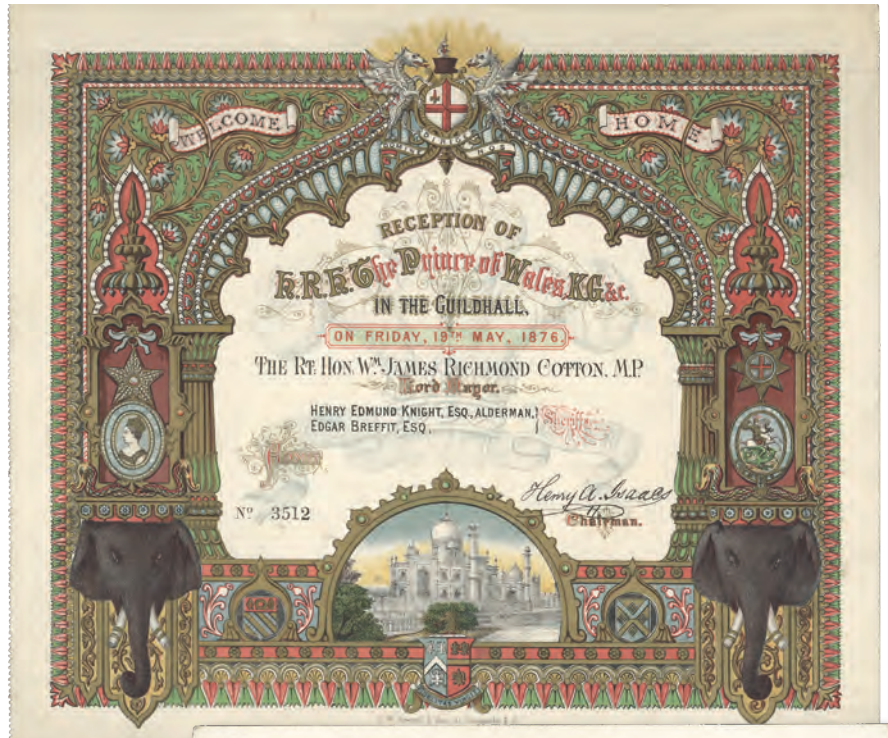 WELCOME
HOME
DOMINE DIRIGE NOS
RECEPTION OF
H.R.H. The Prince of Wales, K.G. &c.
IN THE GUILDHALL,
ON FRIDAY, 19TH MAY, 1876
THE RT. HON. WM. JAMES RICHMOND COTTON, M.P.
Lord Mayor.
HENRY EDMUND KNIGHT, ESQ., ALDERMAN,
EDGAR BREFFIT, ESQ.,
Sheriffs.
Henry A. Isaacs
No 3512
Chairman.